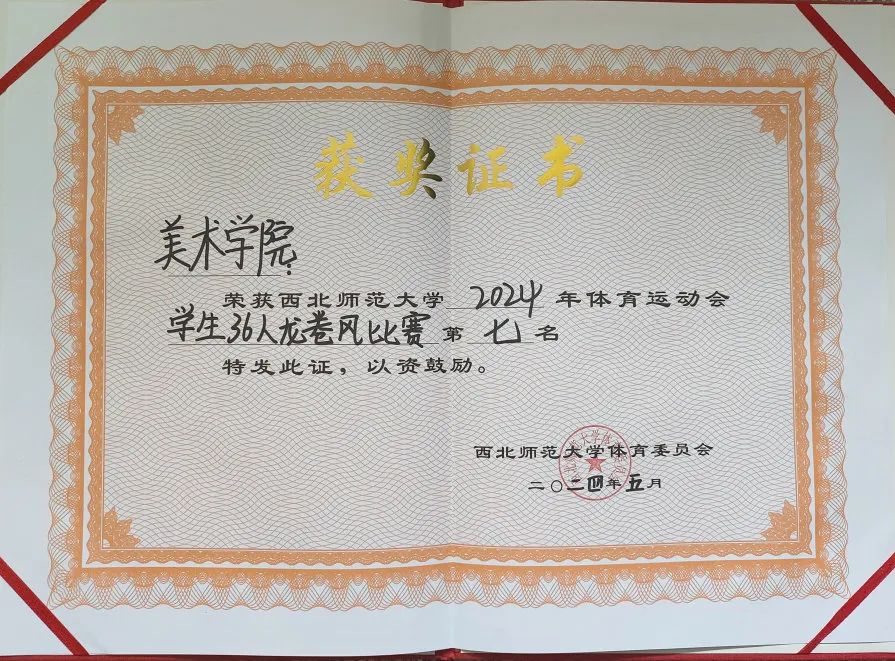 获奖证书
美术学院:
荣获西北师范大学 2024 年体育运动会
学生36人龙卷风比赛 第 七 名
特发此证，以资鼓励。
西北师范大学体育委员会
二〇二四年五月